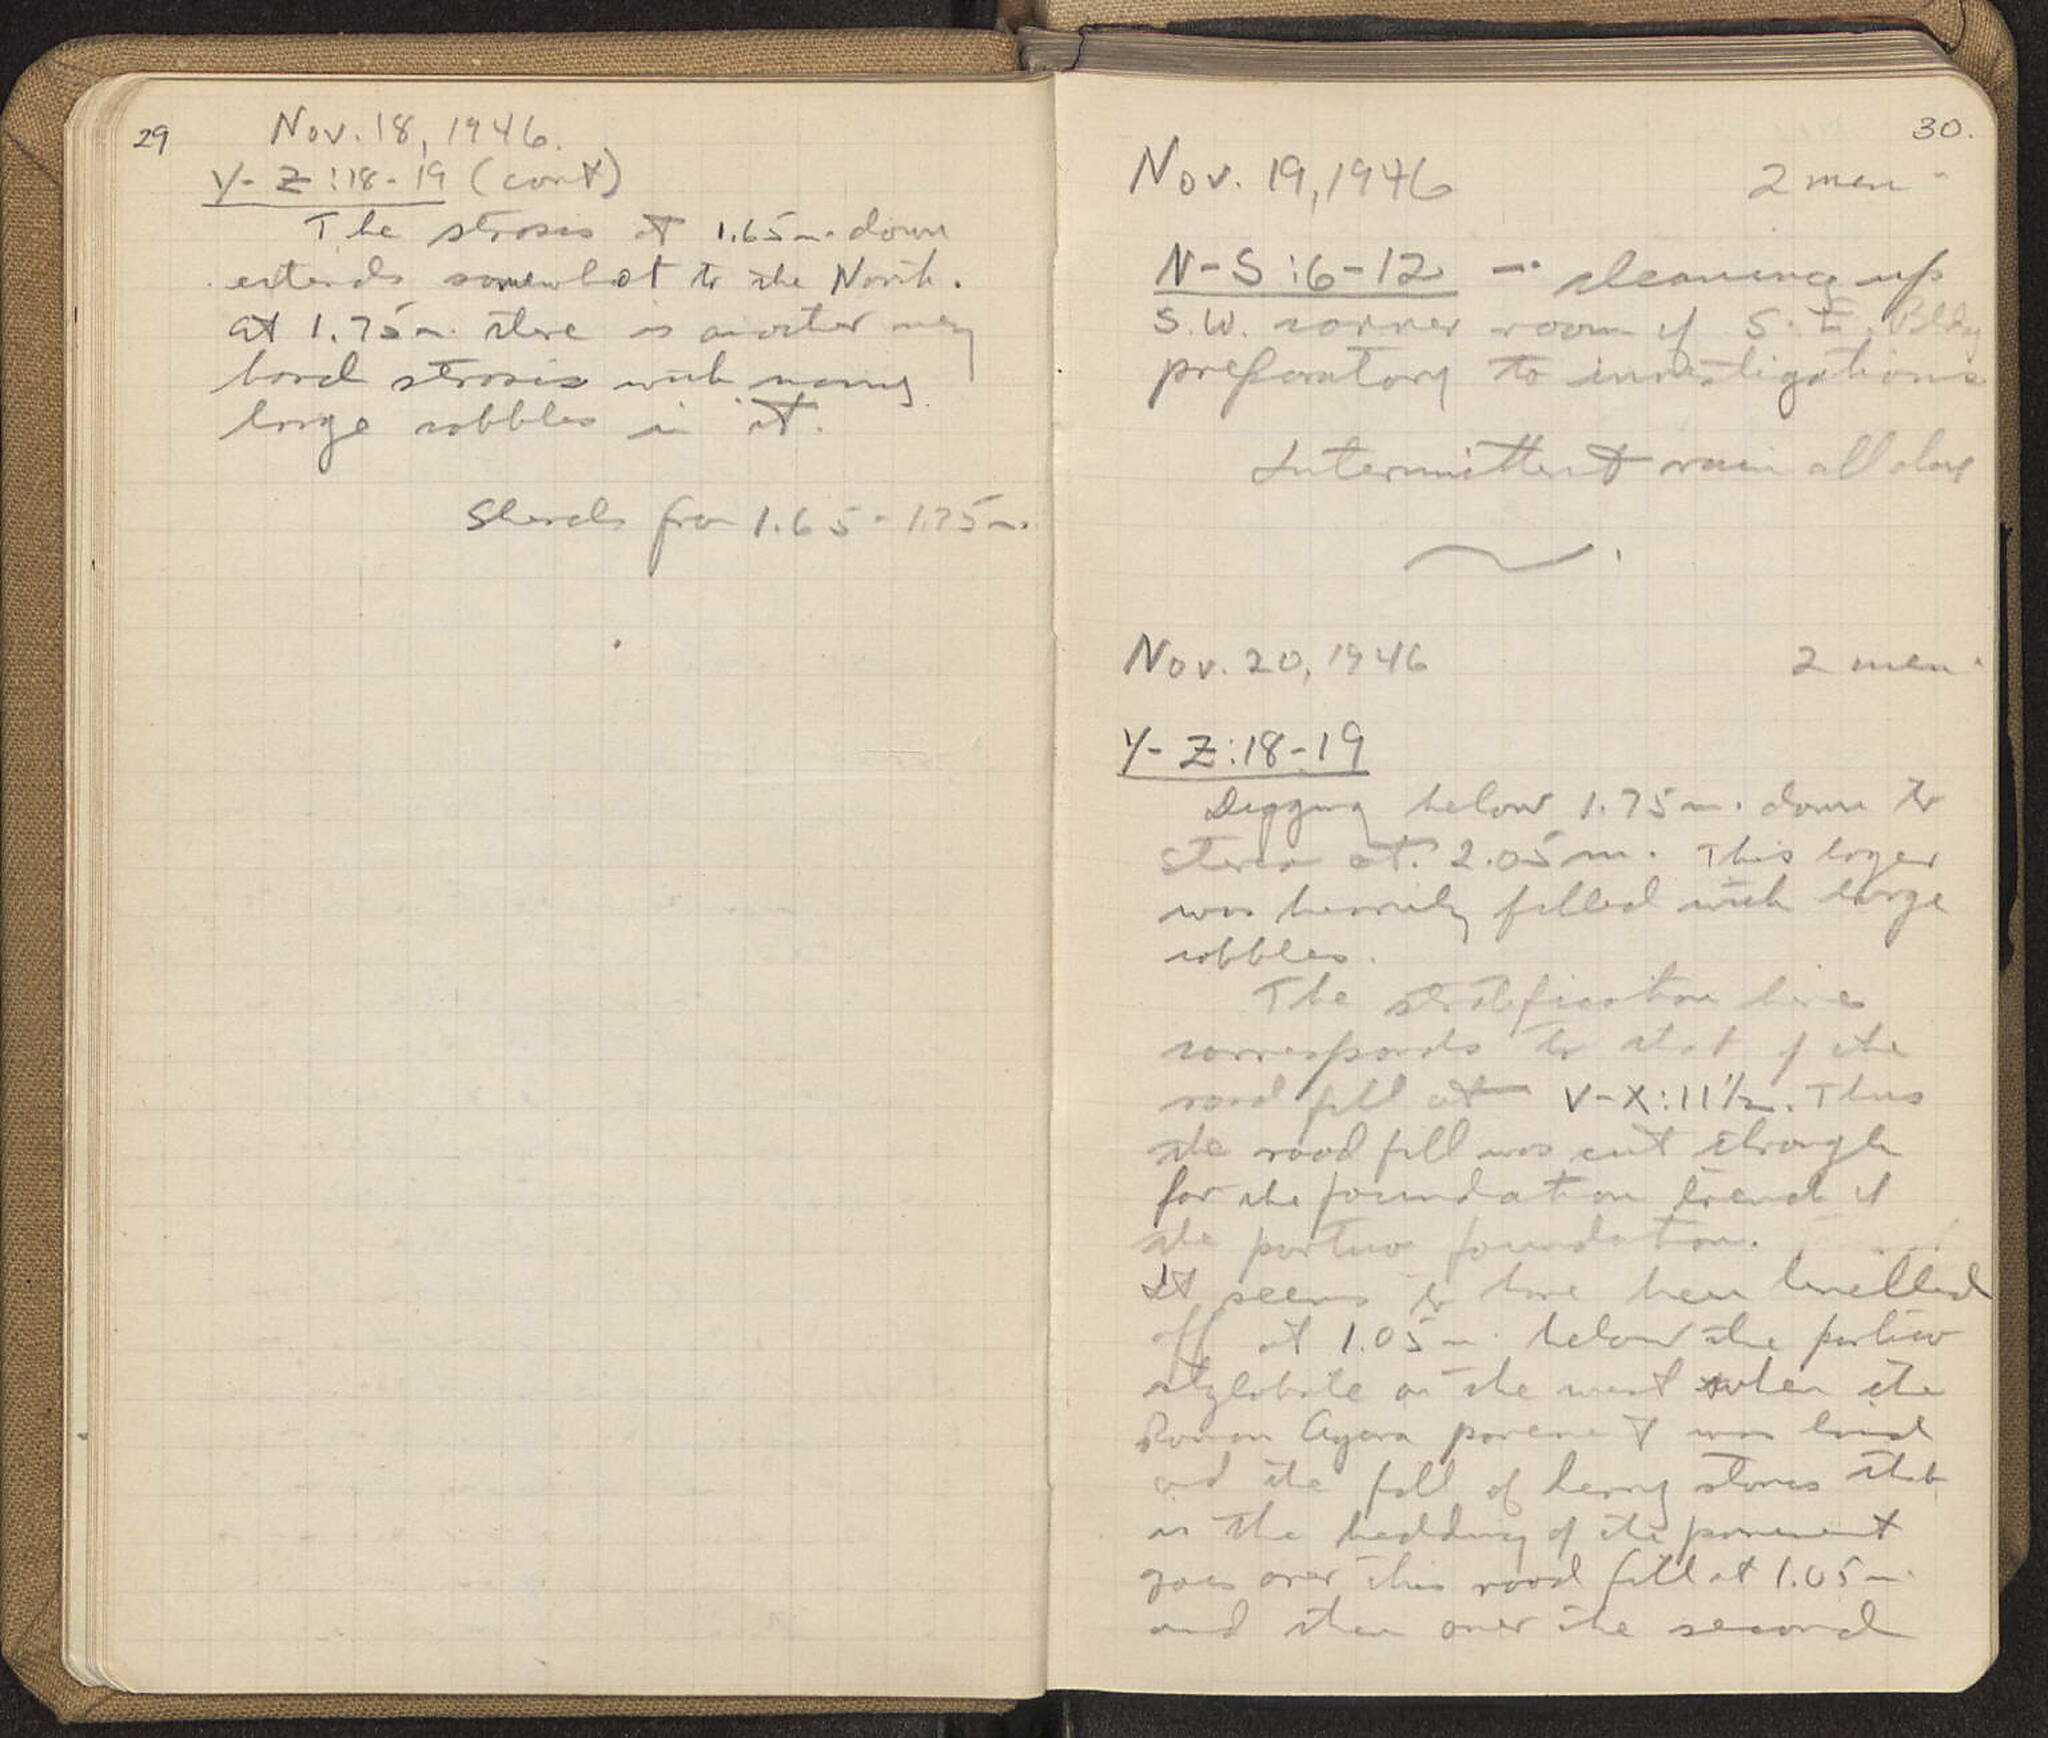 29
Nov. 18, 1946.
Y-Z:18-19 (cont)
The strosis at 1.65 m. down
extends somewhat to the North.
At 1.75 m. there is another very
hard strosis with many
large cobbles in it.
Sherds from 1.65-1.75 m.
30.
Nov. 19, 1946 2 men
N-S:6-12 - cleaning up
S.W. corner room of S.E. Bldg
preparatory to investigations
Intermittent rain all day
Nov. 20, 1946 2 men
Y-Z:18-19
Digging below 1.75 m. down to
stereo at 2.05 m. This layer
was heavily filled with large
cobbles.
The stratification here
corresponds to that of the
road fill at V-X:11 1/2. Thus
the road fill was cut through
for the foundation trench of
the portico foundation.
It seems to have been levelled
off at 1.05 m. below the portico
stylobate on the west when the
Roman Agora pavement was laid
and the fill of heavy stones that
is the bedding of the pavement
goes over this road fill at 1.05 m.
and then over the second